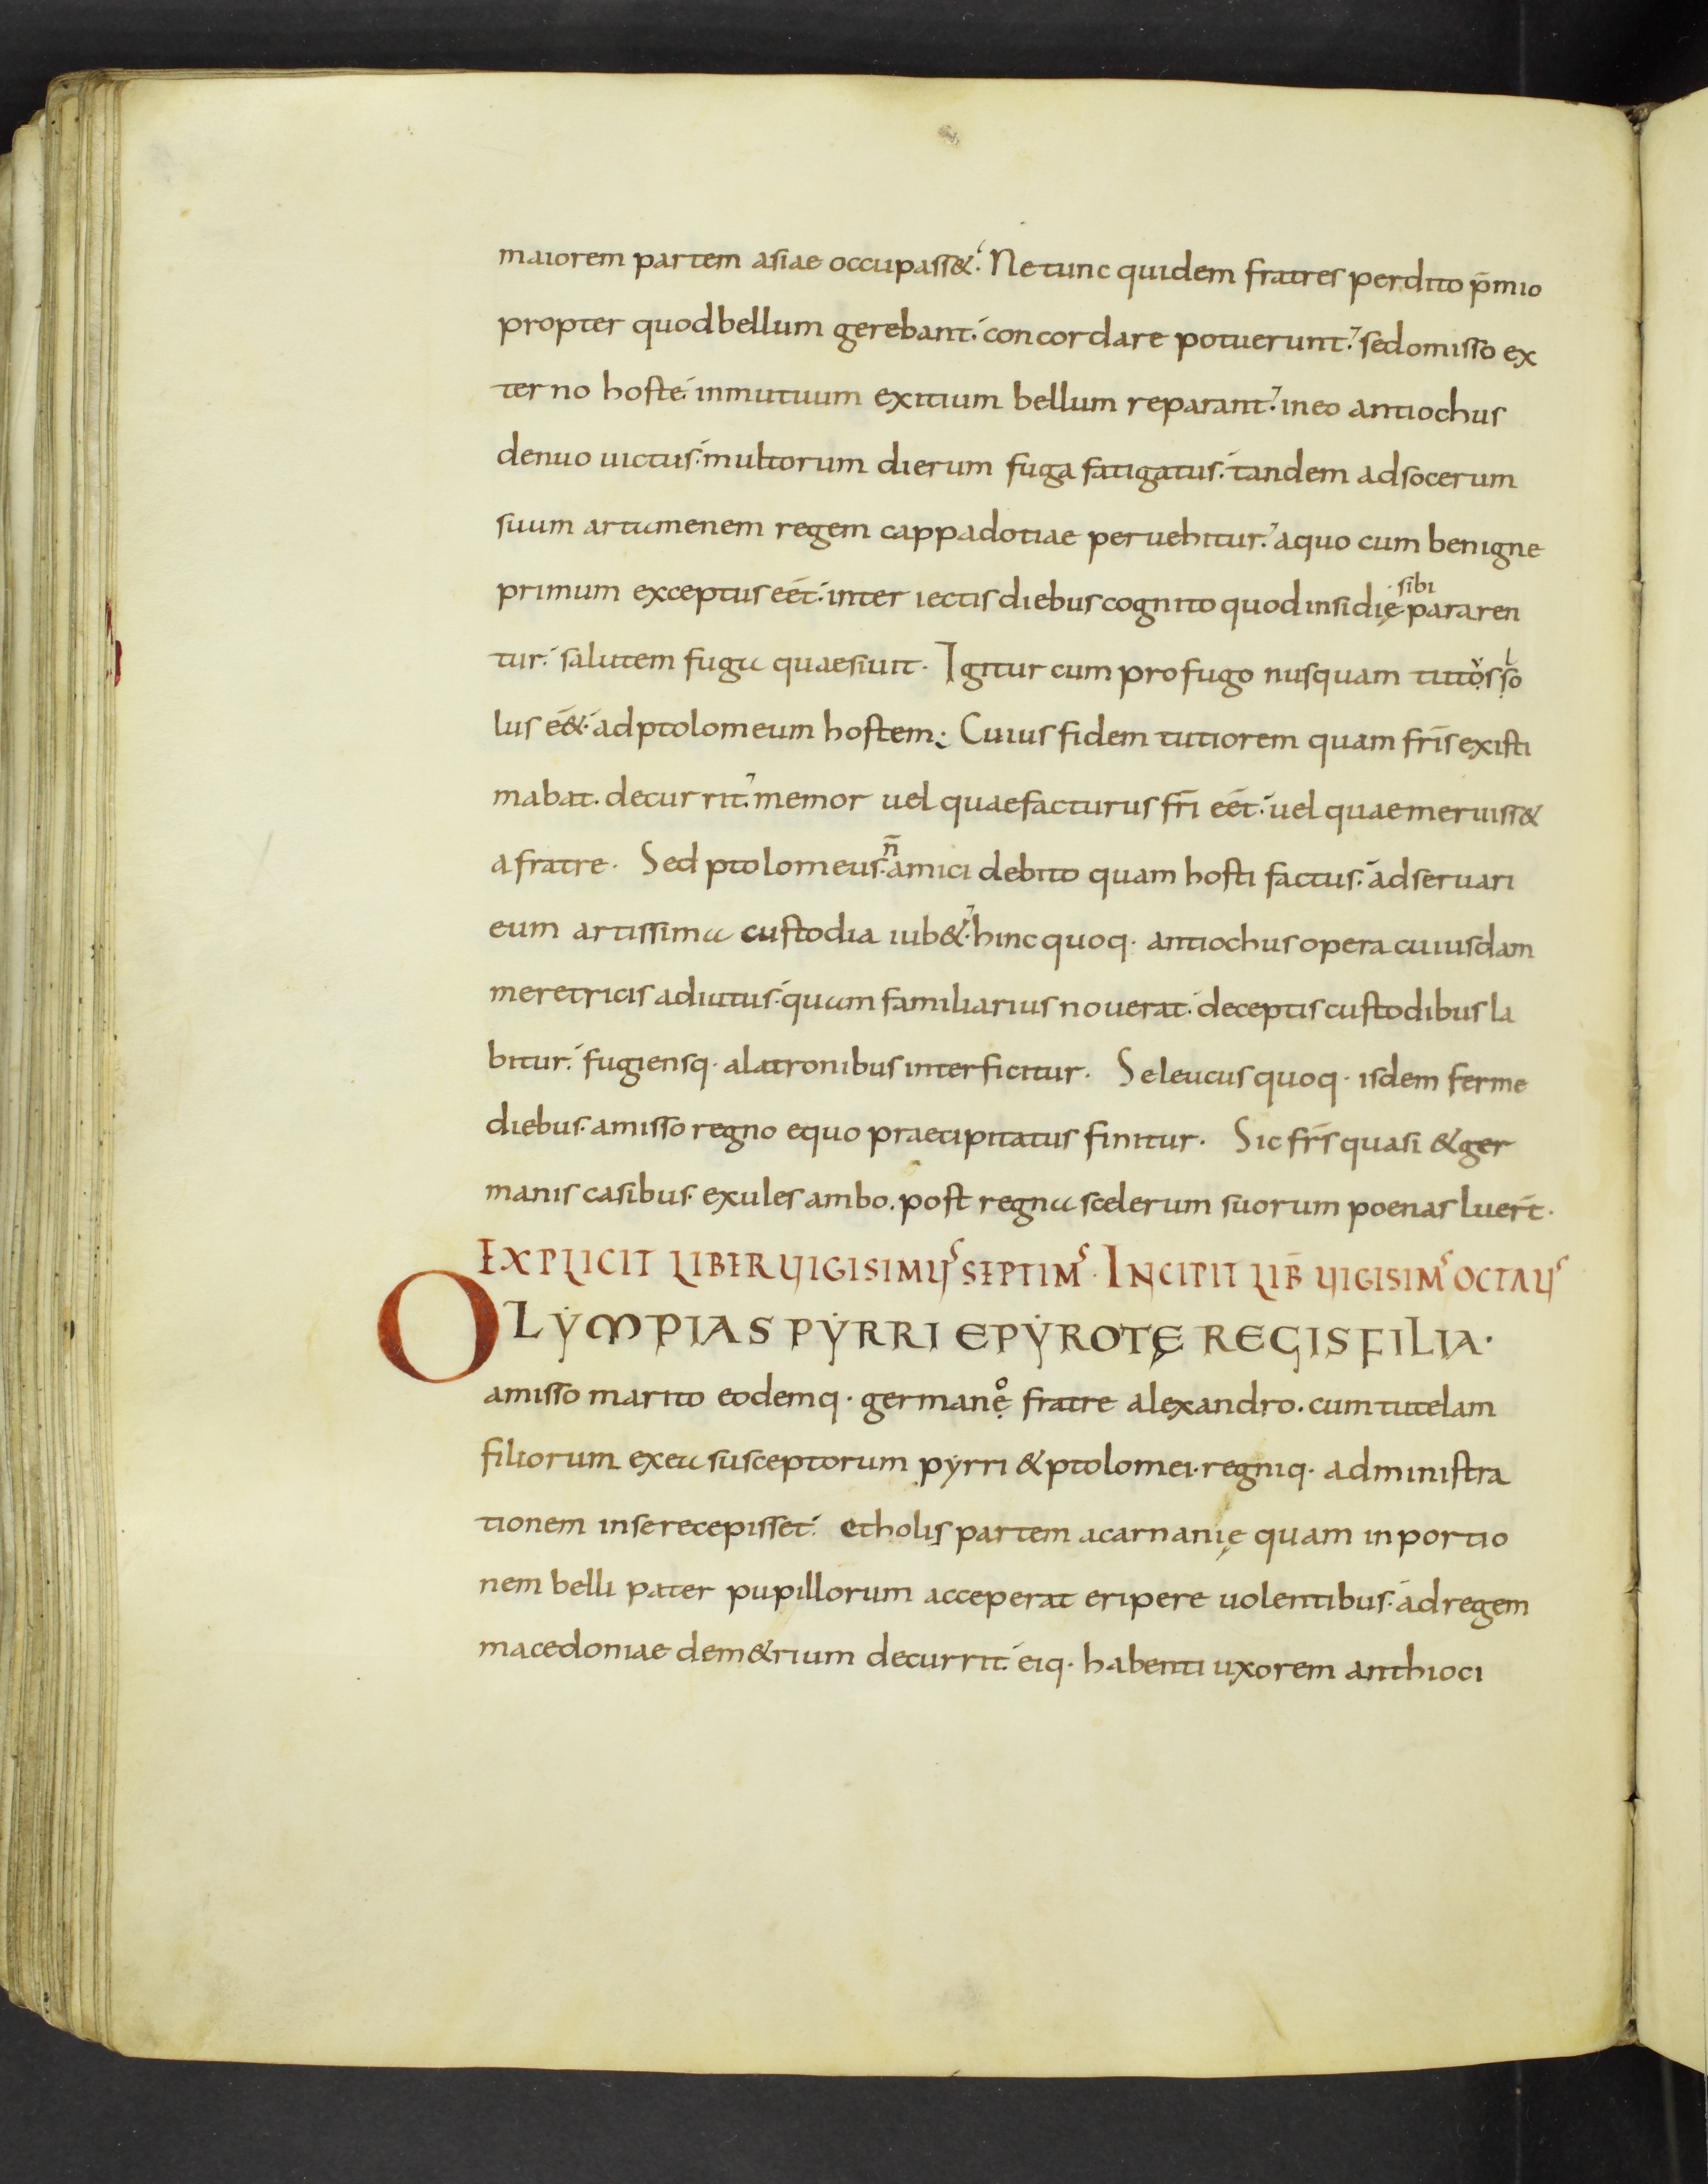 maiorem partem asiae occupass&. Ne tunc quidem fratres perdito p̄mio
propter quod bellum gerebant. concordare potuerunt. sed omisso ex
terno hoste. in mutuum exitium bellum reparant. in eo antiochus
denuo uictus. multorum dierum fuga fatigatus. tandem ad socerum
suum artamenem regem cappadotiae peruehitur. a quo cum benigne
primum exceptus eēt. inter iectis diebus cognito quod insidię sibi pararen
tur. salutem fuga quaesiuit. Igitur cum profugo nusquam tutọvs ṣlo
lus eē&. ad ptolomeum hostem; Cuius fidem tutiorem quam fr̄is existi
mabat. decurrit. memor uel quae facturus fr̄i eēt. uel quae meruiss&
a fratre. Sed ptolomeus. n̄ amici debito quam hosti factus. adseruari
eum artissima custodia iub&. hinc quoq· antiochus opera cuiusdam
meretricis adiutus. quam familiarius nouerat. deceptis custodibus la
bitur. fugiensq· a latronibus interficitur. Seleucus quoq· isdem ferme
diebus. amisso regno equo praecipitatus finitur. Sic fr̄s quasi & ger
manis casibus. exules ambo. post regna scelerum suorum poenas luer̄t.
EXPLICIT LIBER VIGISIMUS SEPTIMS. INCIPIT LIB̄ VIGISIMS OCTAUS
OLẎMPIAS PẎRRI EPẎROTĘ REGIS FILIA.
amisso marito eodemq· germanẹo fratre alexandro. cum tutelam
filiorum ex ea susceptorum pẏrri & ptolomei. regniq· administra
tionem in se recepisset. etholis partem acarnanię quam in portio
nem belli pater pupillorum acceperat eripere uolentibus. ad regem
macedoniae dem&rium decurrit. eiq· habenti uxorem anthioci